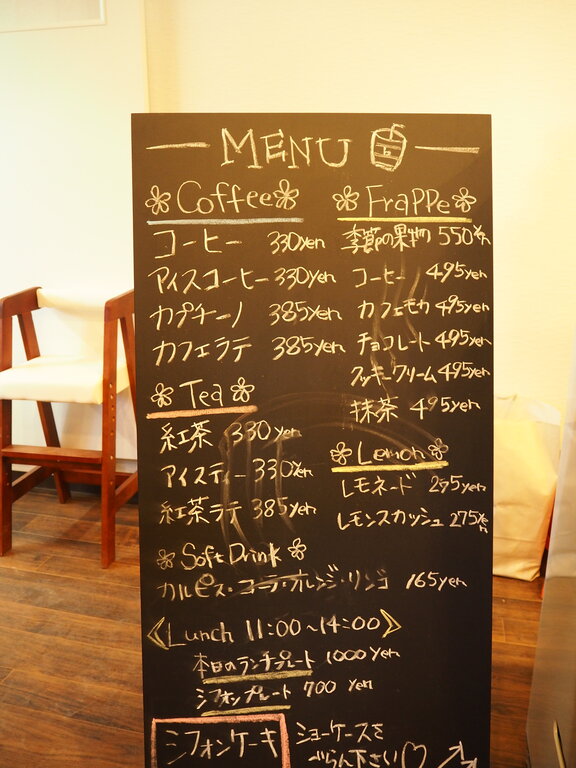 MENU
Coffee
コーヒー 330yen
アイスコーヒー 330yen
カプチーノ 385yen
カフェラテ 385yen
Tea
紅茶 330yen
アイスティー 330yen
紅茶ラテ 385yen
Frappe
季節の果物 550yen
コーヒー 495yen
カフェモカ 495yen
チョコレート 495yen
クッキークリーム 495yen
抹茶 495yen
Lemon
レモネード 275yen
レモンスカッシュ 275yen
Soft Drink
カルピス・コーラ・オレンジ・リンゴ 165yen
Lunch 11:00~14:00
本日のランチプレート 1000yen
シフォンプレート 700yen
シフォンケーキ
ショーケースを
ごらん下さい♡